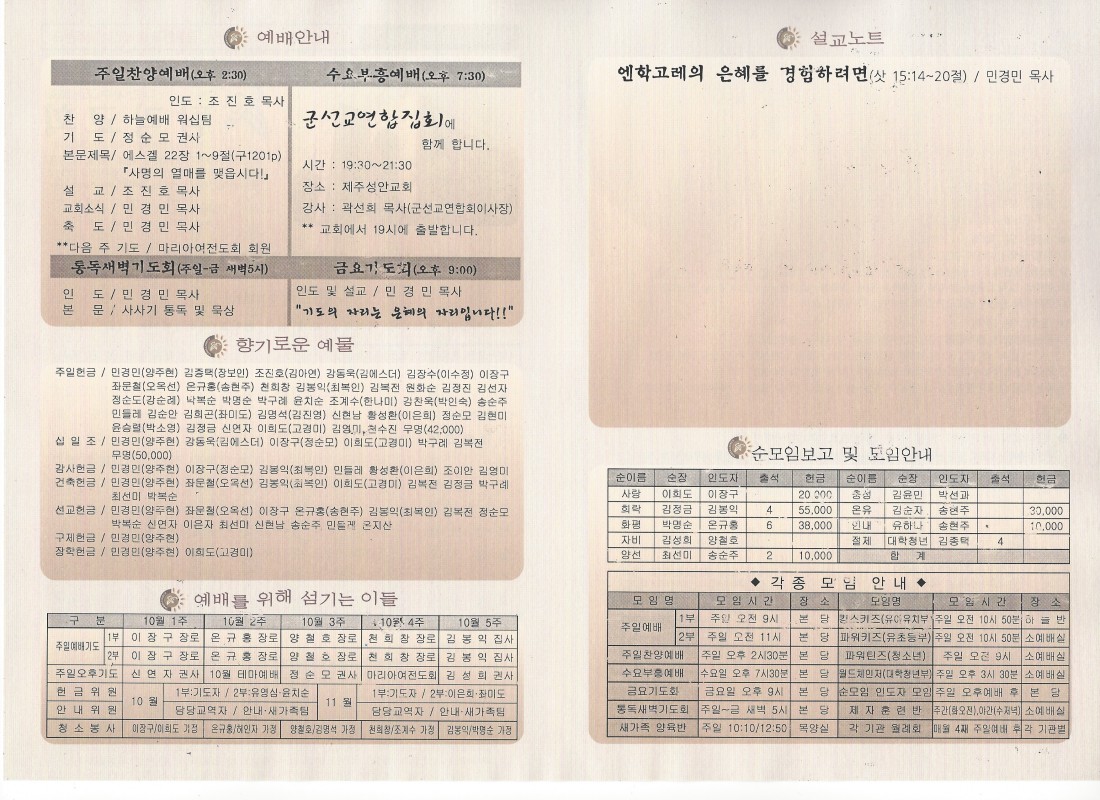 예배안내
주일찬양예배(오후 2:30)
인도 : 조 진 호 목사
찬 양 / 하늘예배 워십팀
기 도 / 정 순 모 권사
본문제목/ 에스겔 22장 1~9절(구1201p)
『사명의 열매를 맺읍시다!』
설 교 / 조 진 호 목사
교회소식 / 민 경 민 목사
축 도 / 민 경 민 목사
**다음 주 기도 / 마리아여전도회 회원
수요부흥예배(오후 7:30)
군선교연합집회에
함께 합니다.
시간 : 19:30~21:30
장소 : 제주성안교회
강사 : 곽선희 목사(군선교연합회이사장)
** 교회에서 19시에 출발합니다.
통독새벽기도회(주일-금 새벽5시)
인 도 / 민 경 민 목사
본 문 / 사사기 통독 및 묵상
금요기도회(오후 9:00)
인도 및 설교 / 민 경 민 목사
"기도의 자리는 은혜의 자리입니다!!"
향기로운 예물
주일헌금 / 민경민(양주현) 김종택(장보인) 조진호(김아연) 강동욱(김에스더) 김장수(이수정) 이장구
좌문철(오옥선) 온규홍(송현주) 천희창 김봉익(최복인) 김복전 원화순 김정진 김선자
정순도(강순례) 낙복순 박명순 박구례 윤치순 조계수(한나미) 김찬욱(박인숙) 송순주
민들레 김순안 김희곤(좌미도) 김명석(김진영) 신현남 황성환(이은희) 정순모 김현미
윤승렬(박소영) 김정금 신연자 이희도(고경미) 김영미 천수진 무명(42,000)
십 일 조 / 민경민(양주현) 강동욱(김에스더) 이장구(정순모) 이희도(고경미) 박구례 김복전
무명(50,000)
감사헌금 / 민경민(양주현) 이장구(정순모) 김봉익(최복인) 민들레 황성환(이은희) 조이안 김영미
건축헌금 / 민경민(양주현) 좌문철(오옥선) 김봉익(최복인) 이희도(고경미) 김복전 김정금 박구례
최선미 박복순
선교헌금 / 민경민(양주현) 좌문철(오옥선) 이장구 온규홍(송현주) 김봉익(최복인) 김복전 정순모
박복순 신연자 이은자 최선미 신현남 송순주 민들레 온지산
구제헌금 / 민경민(양주현)
장학헌금 / 민경민(양주현) 이희도(고경미)
예배를 위해 섬기는 이들
구 분 10월 1주 10월 2주 10월 3주 10월 4주 10월 5주
주일예배기도 1부 이 장 구 장로 온 규 홍 장로 양 철 호 장로 천 희 창 장로 김 봉 익 집사
2부 이 장 구 장로 온 규 홍 장로 양 철 호 장로 천 희 창 장로 김 봉 익 집사
주일오후기도 신 연 자 권사 10월 테마예배 정 순 모 권사 마리아여전도회 김 성 희 권사
헌 금 위 원 10 월 1부:기도자 / 2부:유영심·윤치순 11 월 1부:기도자 / 2부:이은희·좌미도
안 내 위 원 담당교역자 / 안내·새가족팀 담당교역자 / 안내·새가족팀
청 소 봉 사 이장구/이희도 가정 온규홍/허인자 가정 양철호/김명석 가정 천희창/조계수 가정 김봉익/박명순 가정
설교노트
엔학고레의 은혜를 경험하려면(삿 15:14~20절) / 민경민 목사
순모임보고 및 모임안내
순이름 순장 인도자 출석 헌금 순이름 순장 인도자 출석 헌금
사랑 이희도 이장구 20,000 충성 김윤민 박선과
희락 김정금 김봉익 4 55,000 온유 김순자 송현주 30,000
화평 박명순 온규홍 6 38,000 인내 유하나 송현주 10,000
자비 김성희 양철호 절제 대학청년 김종택 4
양선 최선미 송순주 2 10,000 합 계
◆ 각종 모임 안내 ◆
모 임 명 모 임 시 간 장 소 모임명 모 임 시 간 장 소
주일예배 1부 주일 오전 9시 본 당 킹스키즈(유아유치부) 주일 오전 10시 50분 하 늘 반
2부 주일 오전 11시 본 당 파워키즈(유초등부) 주일 오전 10시 50분 소예배실
주일찬양예배 주일 오후 2시30분 본 당 파워틴즈(청소년) 주일 오전 9시 소예배실
수요부흥예배 수요일 오후 7시30분 본 당 월드체인저(대학청년부) 주일 오후 3시 30분 소예배실
금요기도회 금요일 오후 9시 본 당 순모임 인도자 모임 주일 오후예배 후 본 당
통독새벽기도회 주일~금 새벽 5시 본 당 제 자 훈 련 반 주간(화오전),야간(수저녁) 소예배실
새가족 양육반 주일 10:10/12:50 목양실 각 기관 월례회 매월 4째 주일예배 후 각 기관별